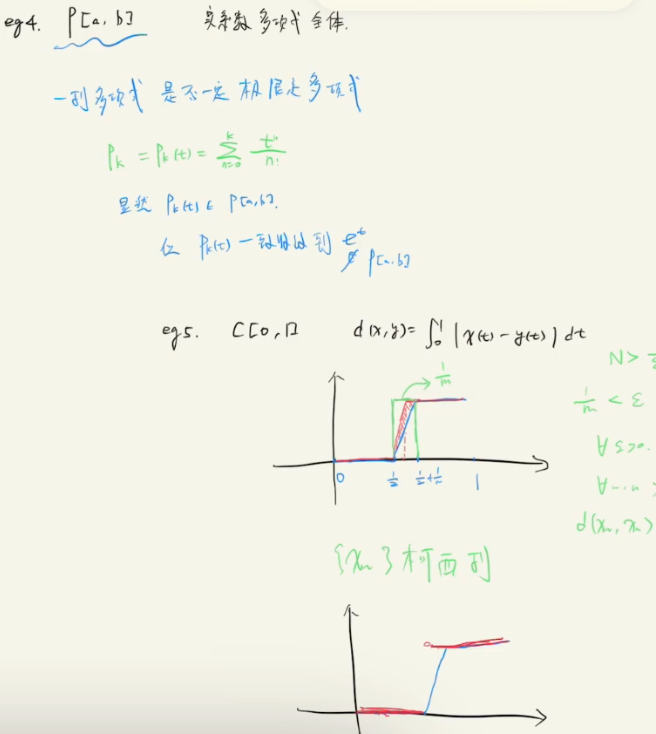 eg4. P[a,b] 实系数多项式全体.
一列多项式 是否一定 极限是多项式
P_k = P_k(t) = \sum_{n=0}^{k} \frac{t^n}{n!}
显然 P_k(t) ∈ P[a,b].
但 P_k(t) 一致收敛到 e^t ∉ P[a,b]
eg5. C[0,1] d(x,y) = ∫_0^1 |x(t) - y(t)| dt
N>
1/m
1/m < ε
∀ε>0.
0 1/2 1/2+1/m 1
∀
d(x_m, x_n)
{x_n}柯西列